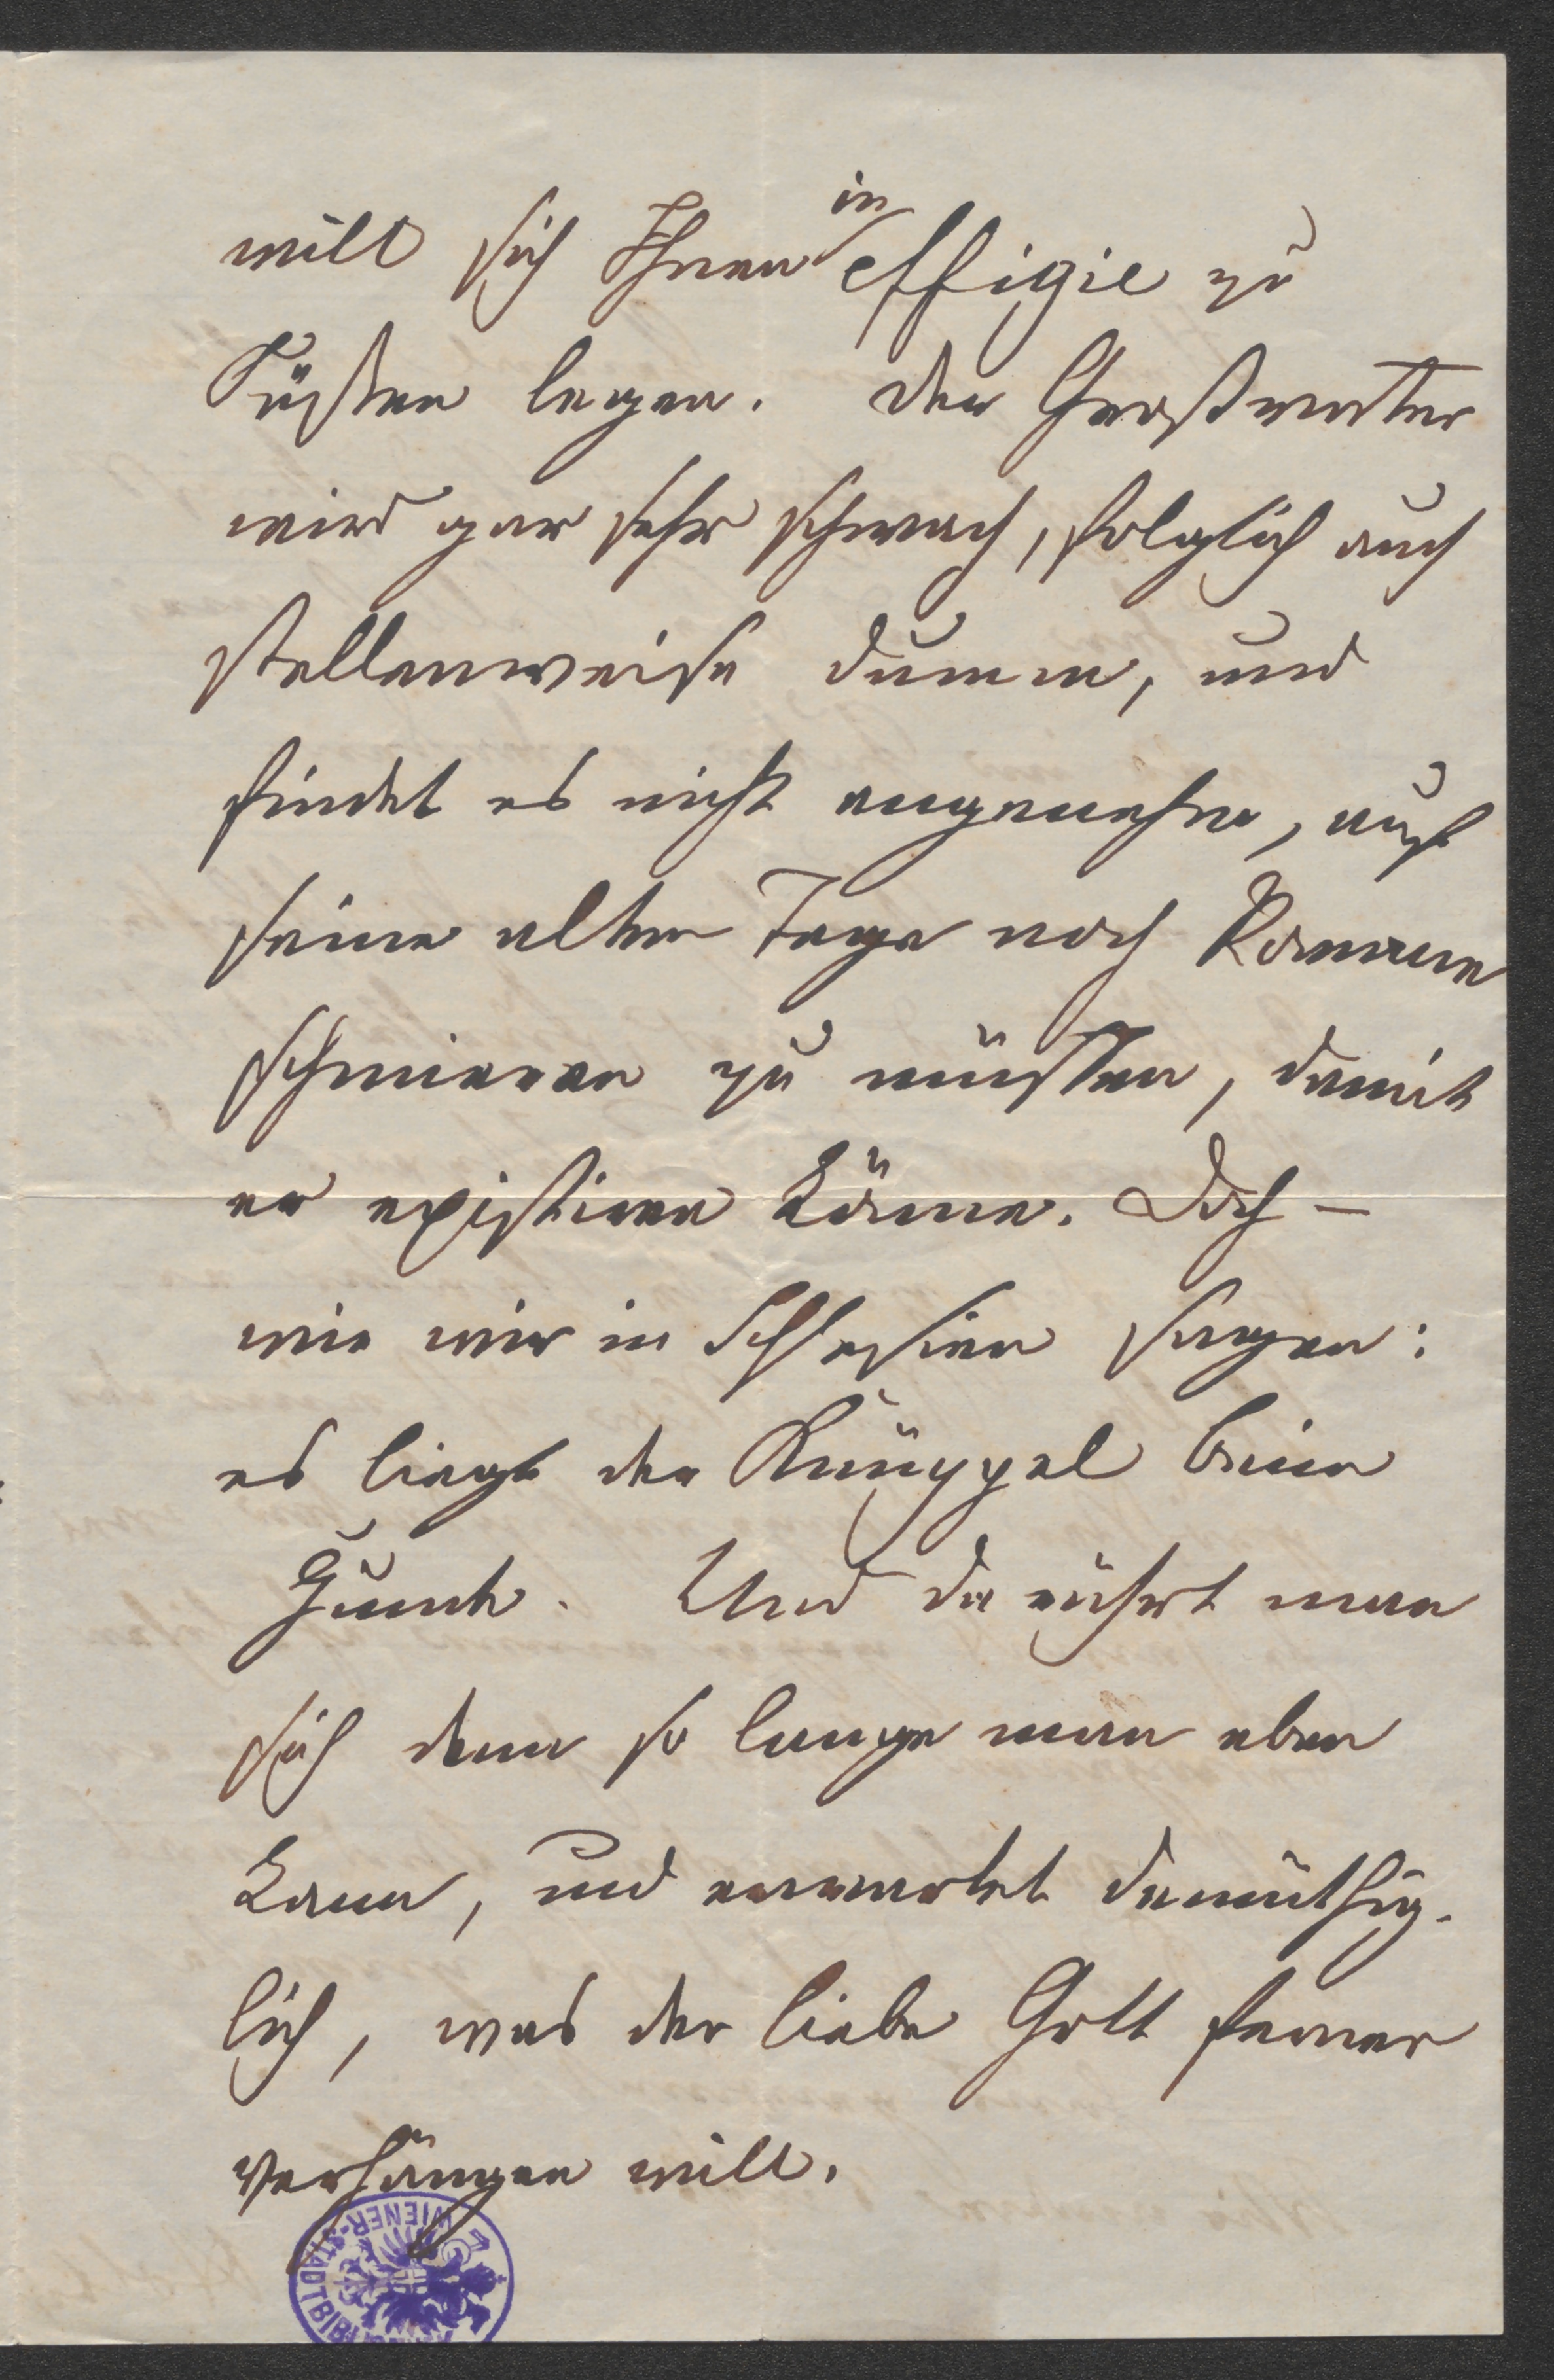 will sich Ihnen in effigie zu
Füßen legen. Der Großvater
wird gar sehr schwach, folglich auch
stellenweise dumm, und
findet es nicht angenehm, auf
seine alten Tage noch Romane
schmieren zu müssen, damit
er existiren könne. Doch –
wie wir in Schlesien sagen:
es liegt der Knüppel beim
Hunde. Und da rührt man
sich denn so lange man eben
kann, und erwartet demüthig-
lich, was der liebe Gott ferner
verhängen will.
WIENER-STADTBIBL